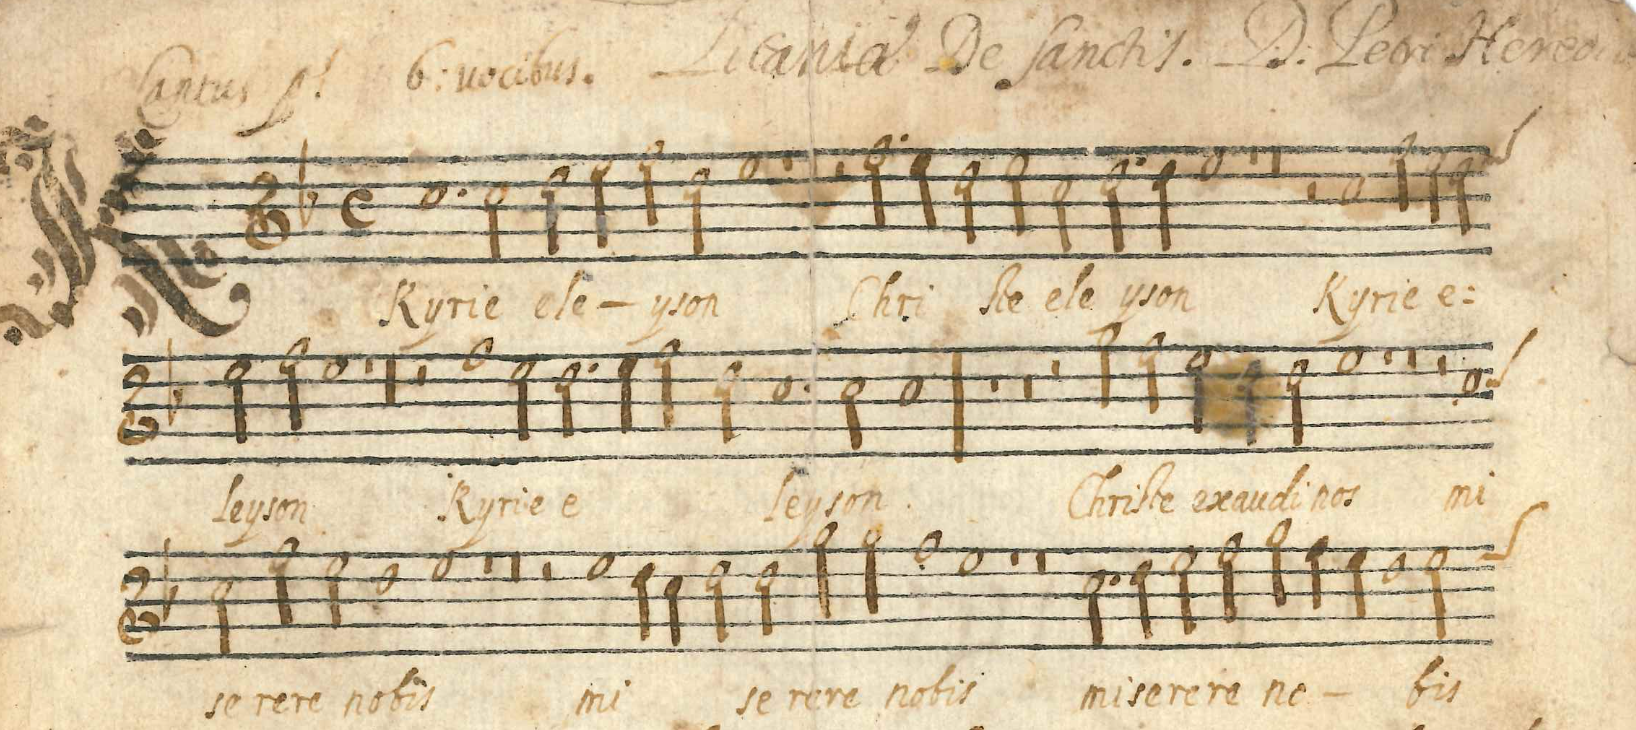 Cantus pᵒ 6: vocibus. Litania De Sanctis. D: Petri Heredia
Kyrie ele - yson Chri ste ele yson Kyrie e:
leyson Kyrie e leyson. Christe exaudi nos mi
se rere nobis mi se rere nobis miserere no - bis